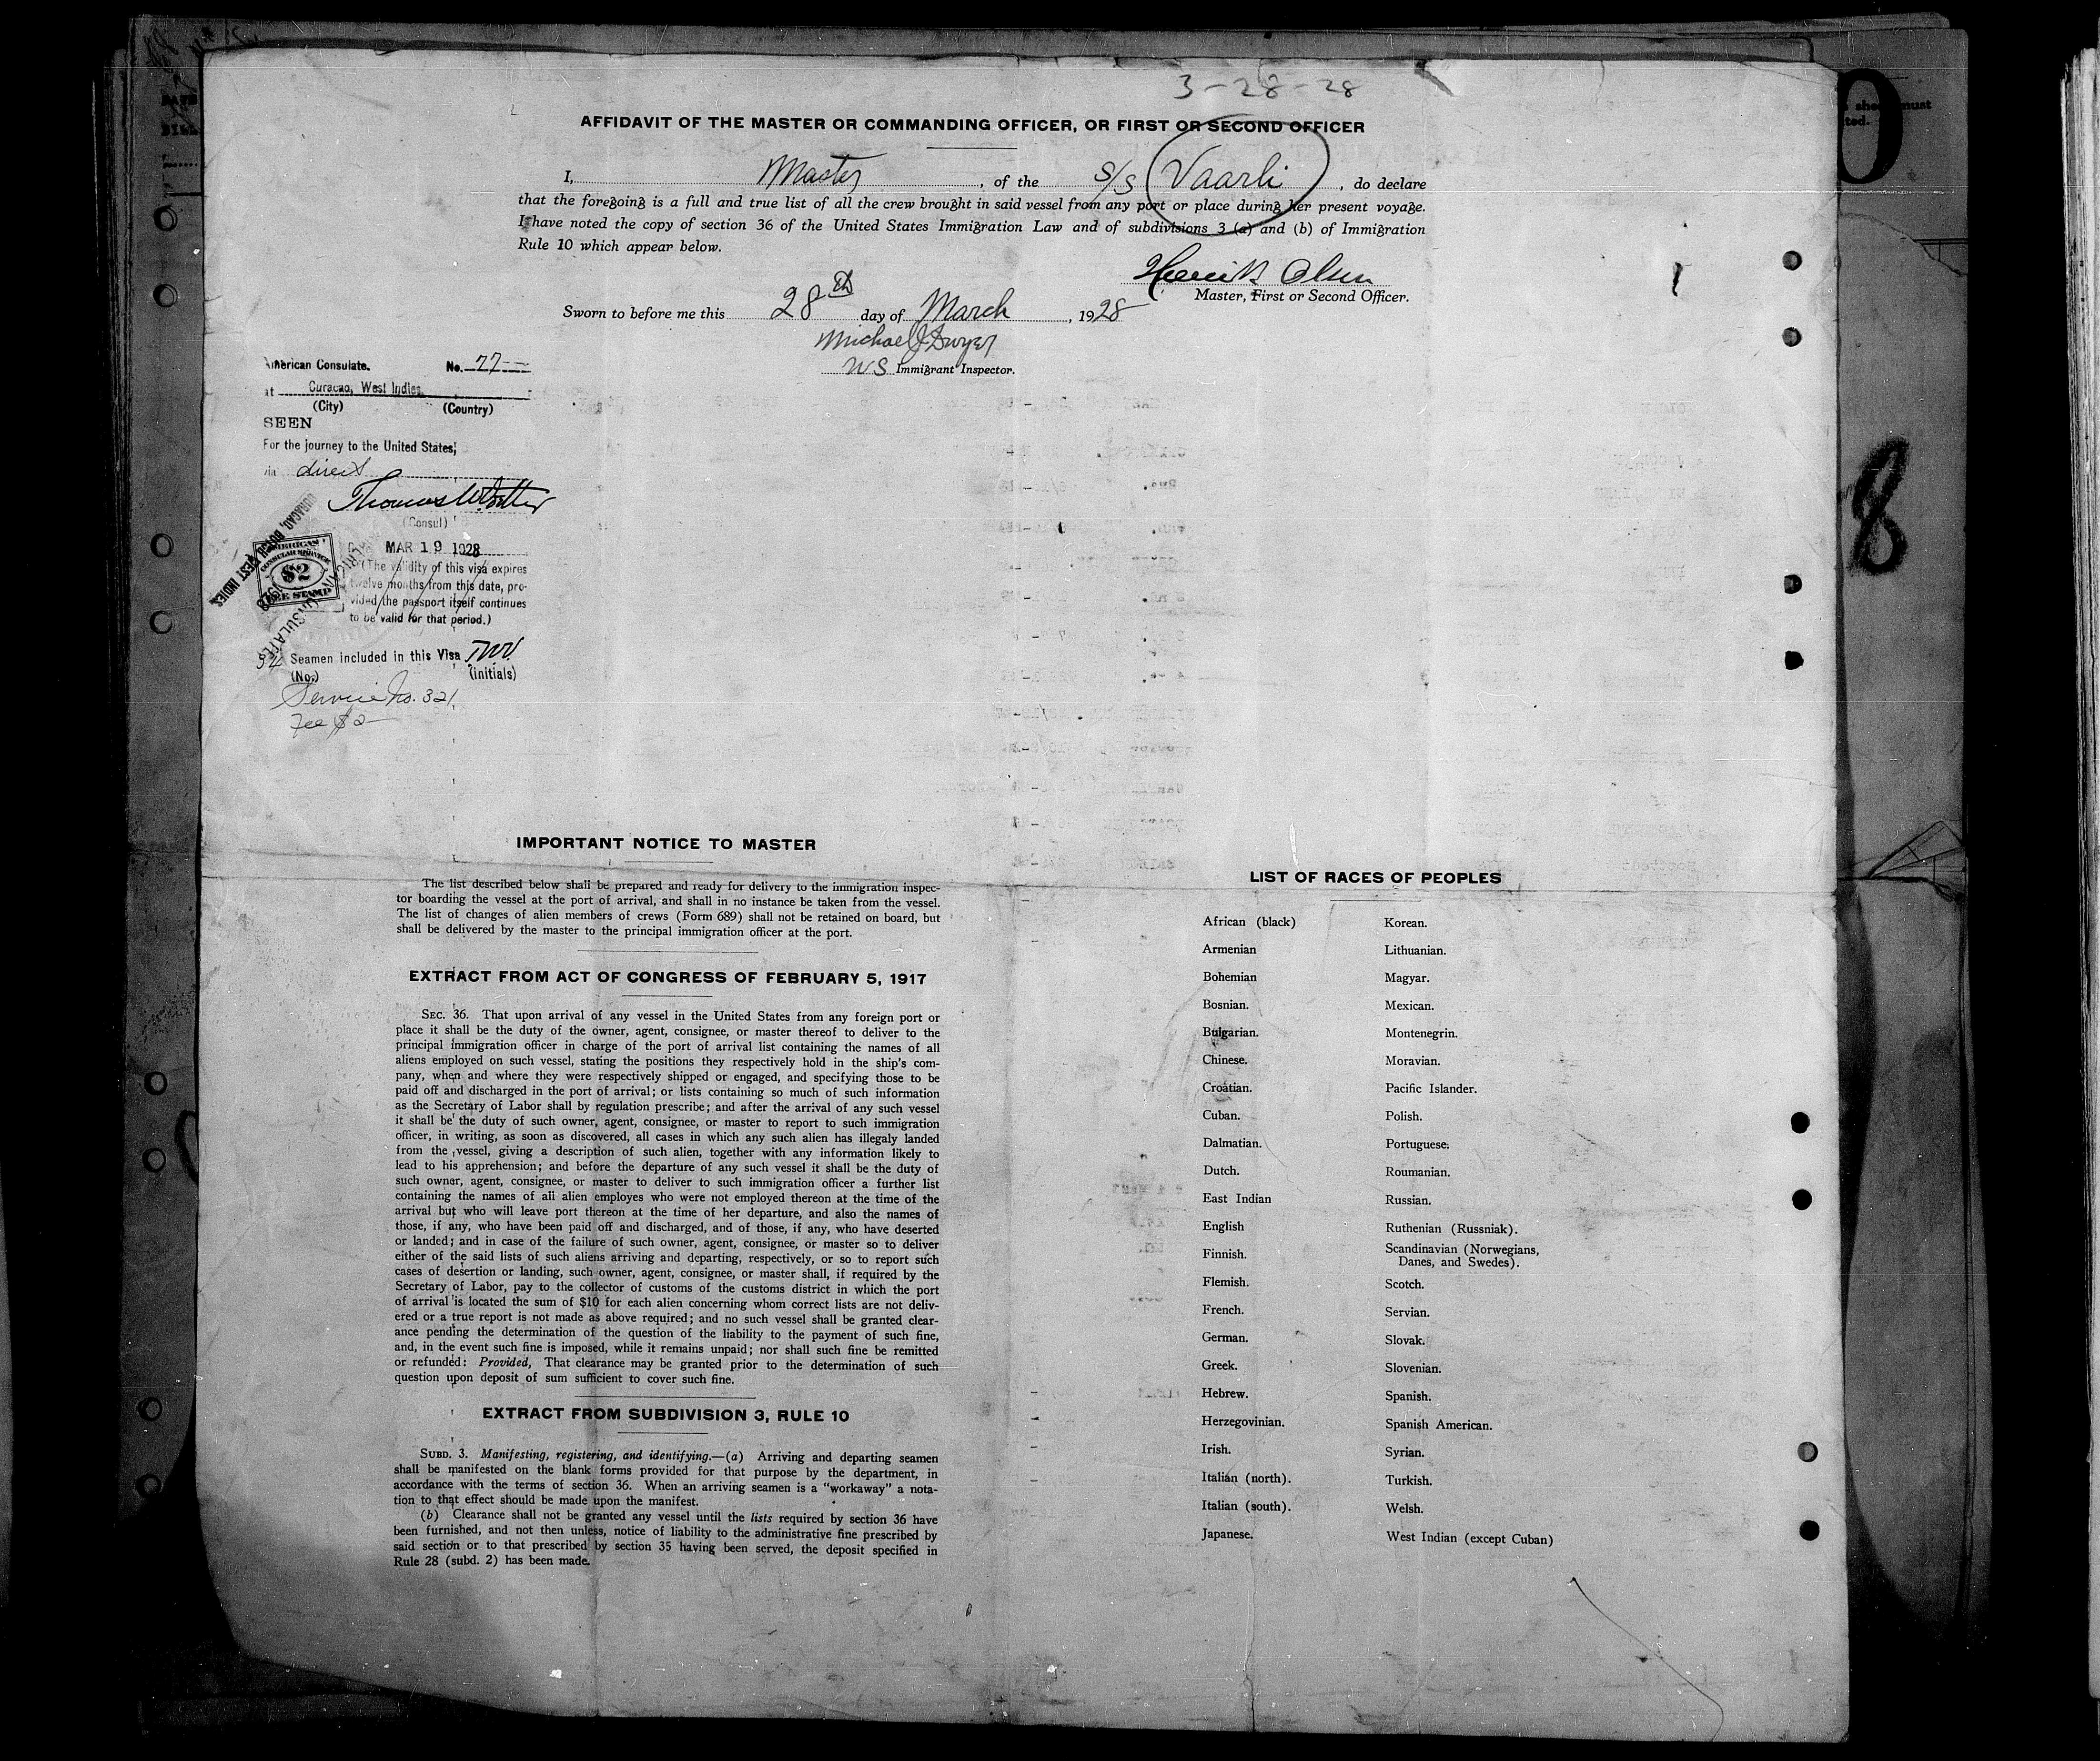 3-28-28
AFFIDAVIT OF THE MASTER OR COMMANDING OFFICER, OR FIRST OR SECOND OFFICER
I, Master, of the S/S Vaarli, do declare
that the foregoing is a full and true list of all the crew brought in said vessel from any port or place during her present voyage.
I have noted the copy of section 36 of the United States Immigration Law and of subdivisions 3 (a) and (b) of Immigration
Rule 10 which appear below.
Henrik Olsen
Master, First or Second Officer.
Sworn to before me this 28th day of March, 1928
Michael J Dwyer
US Immigrant Inspector.
American Consulate. No. 77
at Curacao, West Indies
(City) (Country)
SEEN
For the journey to the United States,
via direct
Thomas W.
(Consul)
MAR 19 1928
(The validity of this visa expires
twelve months from this date, pro-
vided the passport itself continues
to be valid for that period.)
AMERICAN
CONSULAR SERVICE
$2
FEE STAMP
CURACAO, DUTCH WEST INDIES
34 Seamen included in this Visa
(No.) (initials)
Service No. 321
Fee $2
8
IMPORTANT NOTICE TO MASTER
The list described below shall be prepared and ready for delivery to the immigration inspec-
tor boarding the vessel at the port of arrival, and shall in no instance be taken from the vessel.
The list of changes of alien members of crews (Form 689) shall not be retained on board, but
shall be delivered by the master to the principal immigration officer at the port.
EXTRACT FROM ACT OF CONGRESS OF FEBRUARY 5, 1917
SEC. 36. That upon arrival of any vessel in the United States from any foreign port or
place it shall be the duty of the owner, agent, consignee, or master thereof to deliver to the
principal immigration officer in charge of the port of arrival list containing the names of all
aliens employed on such vessel, stating the positions they respectively hold in the ship's com-
pany, when and where they were respectively shipped or engaged, and specifying those to be
paid off and discharged in the port of arrival; or lists containing so much of such information
as the Secretary of Labor shall by regulation prescribe; and after the arrival of any such vessel
it shall be the duty of such owner, agent, consignee, or master to report to such immigration
officer, in writing, as soon as discovered, all cases in which any such alien has illegally landed
from the vessel, giving a description of such alien, together with any information likely to
lead to his apprehension; and before the departure of any such vessel it shall be the duty of
such owner, agent, consignee, or master to deliver to such immigration officer a further list
containing the names of all alien employes who were not employed thereon at the time of the
arrival but who will leave port thereon at the time of her departure, and also the names of
those, if any, who have been paid off and discharged, and of those, if any, who have deserted
or landed; and in case of the failure of such owner, agent, consignee, or master so to deliver
either of the said lists of such aliens arriving and departing, respectively, or so to report such
cases of desertion or landing, such owner, agent, consignee, or master shall, if required by the
Secretary of Labor, pay to the collector of customs of the customs district in which the port
of arrival is located the sum of $10 for each alien concerning whom correct lists are not deliv-
ered or a true report is not made as above required; and no such vessel shall be granted clear-
ance pending the determination of the question of the liability to the payment of such fine,
and, in the event such fine is imposed, while it remains unpaid; nor shall such fine be remitted
or refunded: Provided, That clearance may be granted prior to the determination of such
question upon deposit of sum sufficient to cover such fine.
EXTRACT FROM SUBDIVISION 3, RULE 10
SUBD. 3. Manifesting, registering, and identifying.—(a) Arriving and departing seamen
shall be manifested on the blank forms provided for that purpose by the department, in
accordance with the terms of section 36. When an arriving seamen is a "workaway" a nota-
tion to that effect should be made upon the manifest.
(b) Clearance shall not be granted any vessel until the lists required by section 36 have
been furnished, and not then unless, notice of liability to the administrative fine prescribed by
said section or to that prescribed by section 35 having been served, the deposit specified in
Rule 28 (subd. 2) has been made.
LIST OF RACES OF PEOPLES
African (black)
Armenian
Bohemian
Bosnian.
Bulgarian.
Chinese.
Croatian.
Cuban.
Dalmatian.
Dutch.
East Indian
English
Finnish.
Flemish.
French.
German.
Greek.
Hebrew.
Herzegovinian.
Irish.
Italian (north).
Italian (south).
Japanese.
Korean.
Lithuanian.
Magyar.
Mexican.
Montenegrin.
Moravian.
Pacific Islander.
Polish.
Portuguese.
Roumanian.
Russian.
Ruthenian (Russniak).
Scandinavian (Norwegians,
Danes, and Swedes).
Scotch.
Servian.
Slovak.
Slovenian.
Spanish.
Spanish American.
Syrian.
Turkish.
Welsh.
West Indian (except Cuban)